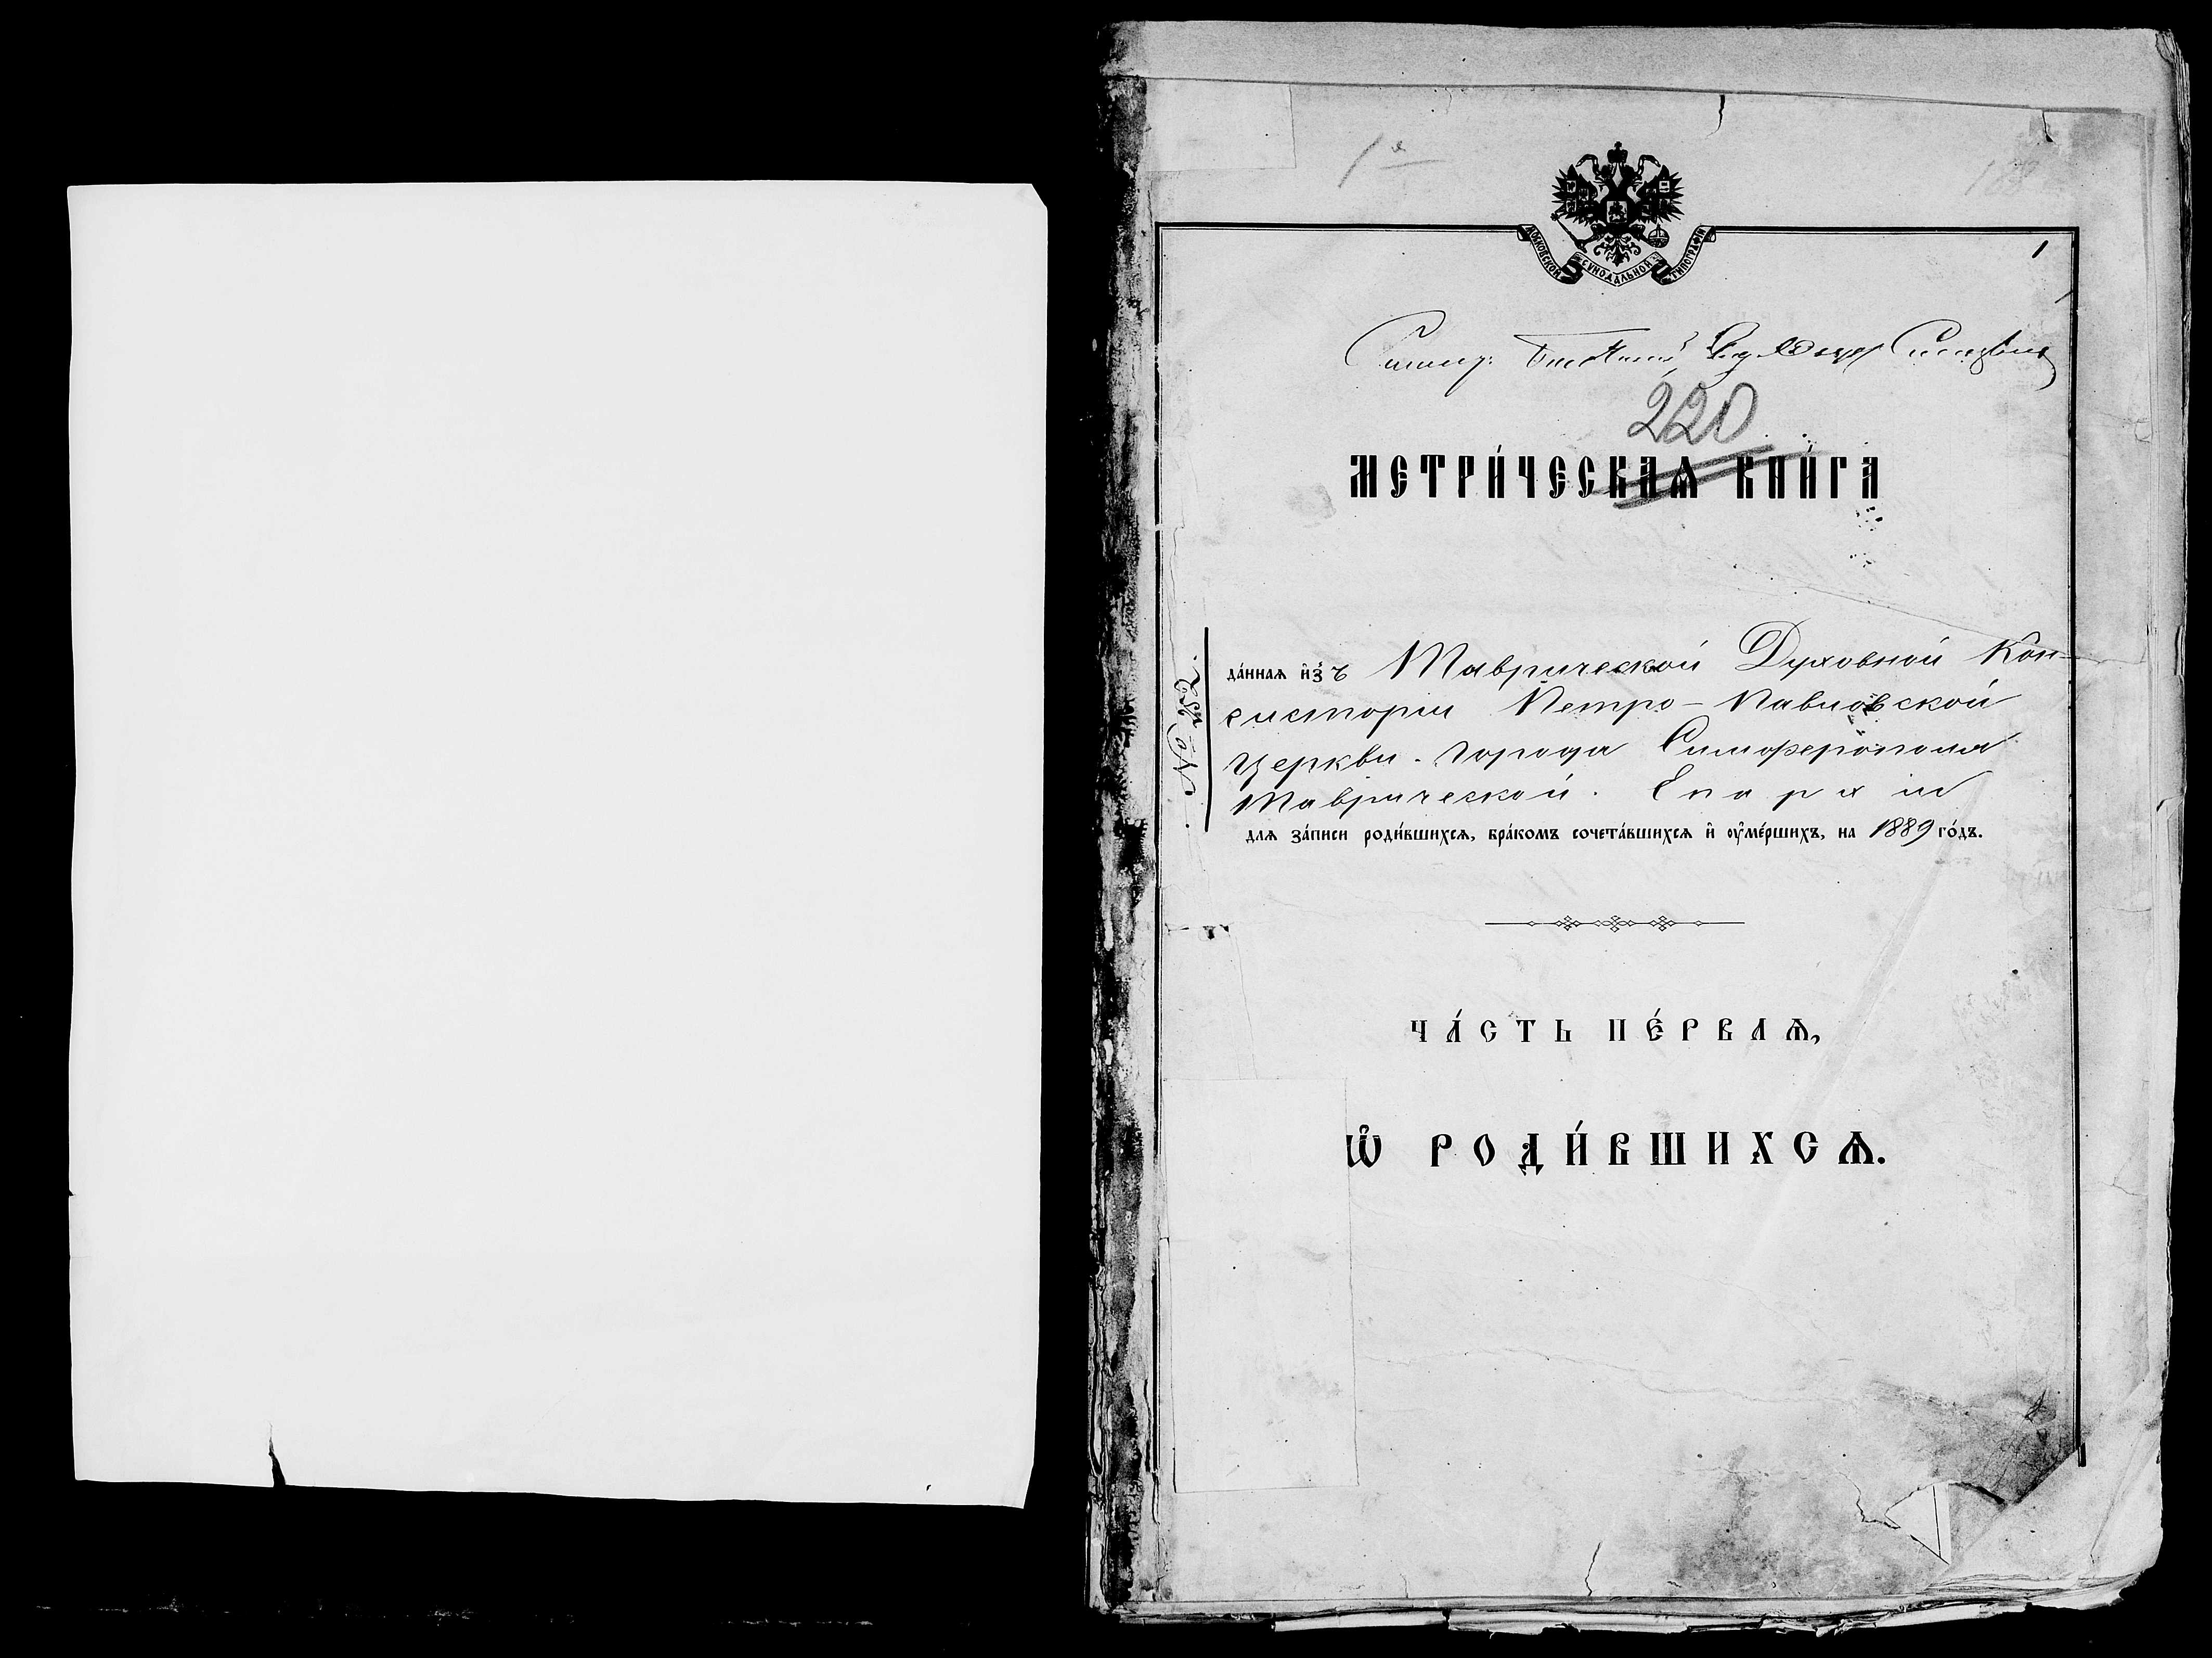 1е
1
МОСКОВСКОЙ СѴНОДАЛЬНОЙ ТИПОГРАФІИ
220
МЕТРИ́ЧЕСКАѦ КНИ́ГА
да́нная и҆зъ Таврической Духовной Кон-
систоріи Петро-Павловской
церкви города Симферополя
Таврической Епархіи
для за́писи роди́вшихсѧ, бра́комъ сочета́вшихсѧ и҆ оу҆ме́ршихъ, на 1889 го́дъ.
№
ЧА́СТЬ ПЕ́РВАѦ,
Ѡ҆ РОДИ́ВШИХСѦ.